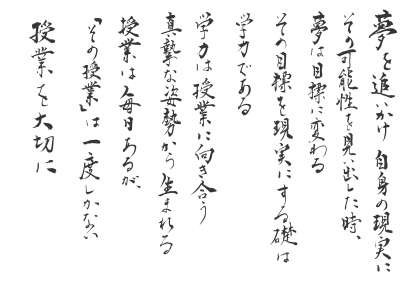 夢を追いかけ 自身の現実に
その可能性を見い出した時、
夢は目標に変わる
その目標を現実にする礎は
学力である
学力は授業に向き合う
真摯な姿勢から生まれる
授業は毎日あるが、
「その授業」は一度しかない
授業を大切に